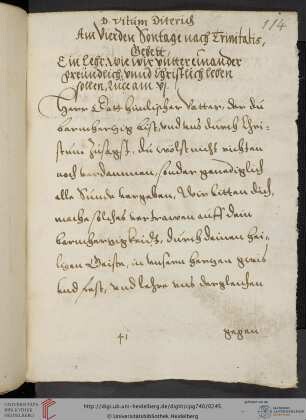 114
D. Vitum Diterich
Am Vierden Sontage nach Trinitatis,
Gebett.
Ein Lehr, wie wir vnttereinander
freundtlich, vnnd christlich leben
sollen, Luce am vj.
Herr Gott himlischer Vatter, der du
barmhertzig bist, vnd vns durch Chri-
stum zusagst, du wölst nicht richten
noch verdammen, sonder genediglich
alle Sünde vergeben, Wir bitten dich,
mache solches vertrawen auff dein
barmhertzigkeidt, durch deinen hei-
ligen Geiste, in vnsern hertzen gewis
vnd fest, vnd lehre vns dergleichen
41
gegen
UNIVERSITÄTS-
BIBLIOTHEK
HEIDELBERG
http://digi.ub.uni-heidelberg.de/diglit/cpg740/0245
© Universitätsbibliothek Heidelberg